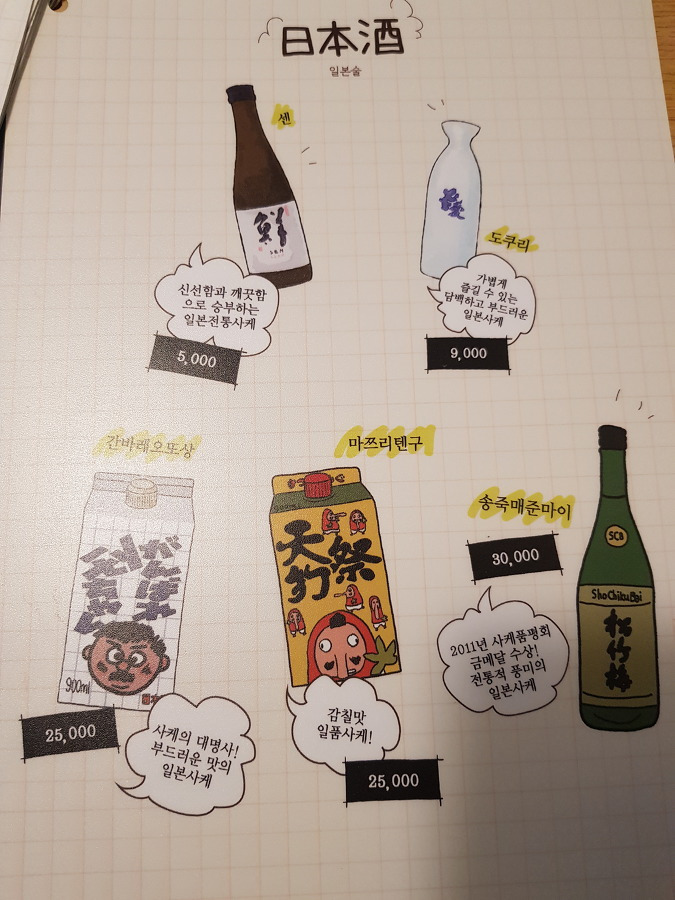 日本酒
일본술
센
鮮
신선함과 깨끗함
으로 승부하는
일본전통사케
5,000
도쿠리
가볍게
즐길 수 있는
담백하고 부드러운
일본사케
9,000
간바레오또상
がんばれ
父ちゃん
900ml
25,000
사케의 대명사!
부드러운 맛의
일본사케
마쯔리텐구
祭
天狗
감칠맛
일품사케!
25,000
송죽매준마이
30,000
2011년 사케품평회
금메달 수상!
전통적 풍미의
일본사케
SCB
ShoChikuBai
松竹梅